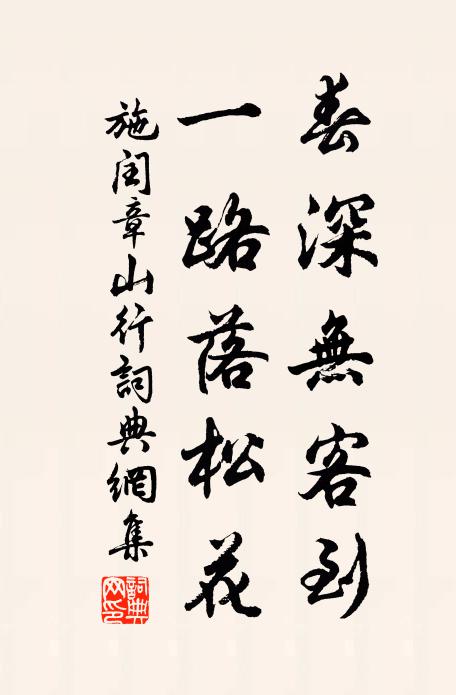 春深無客到
一路落松花
施閏章山行詞典網集
詞典網印